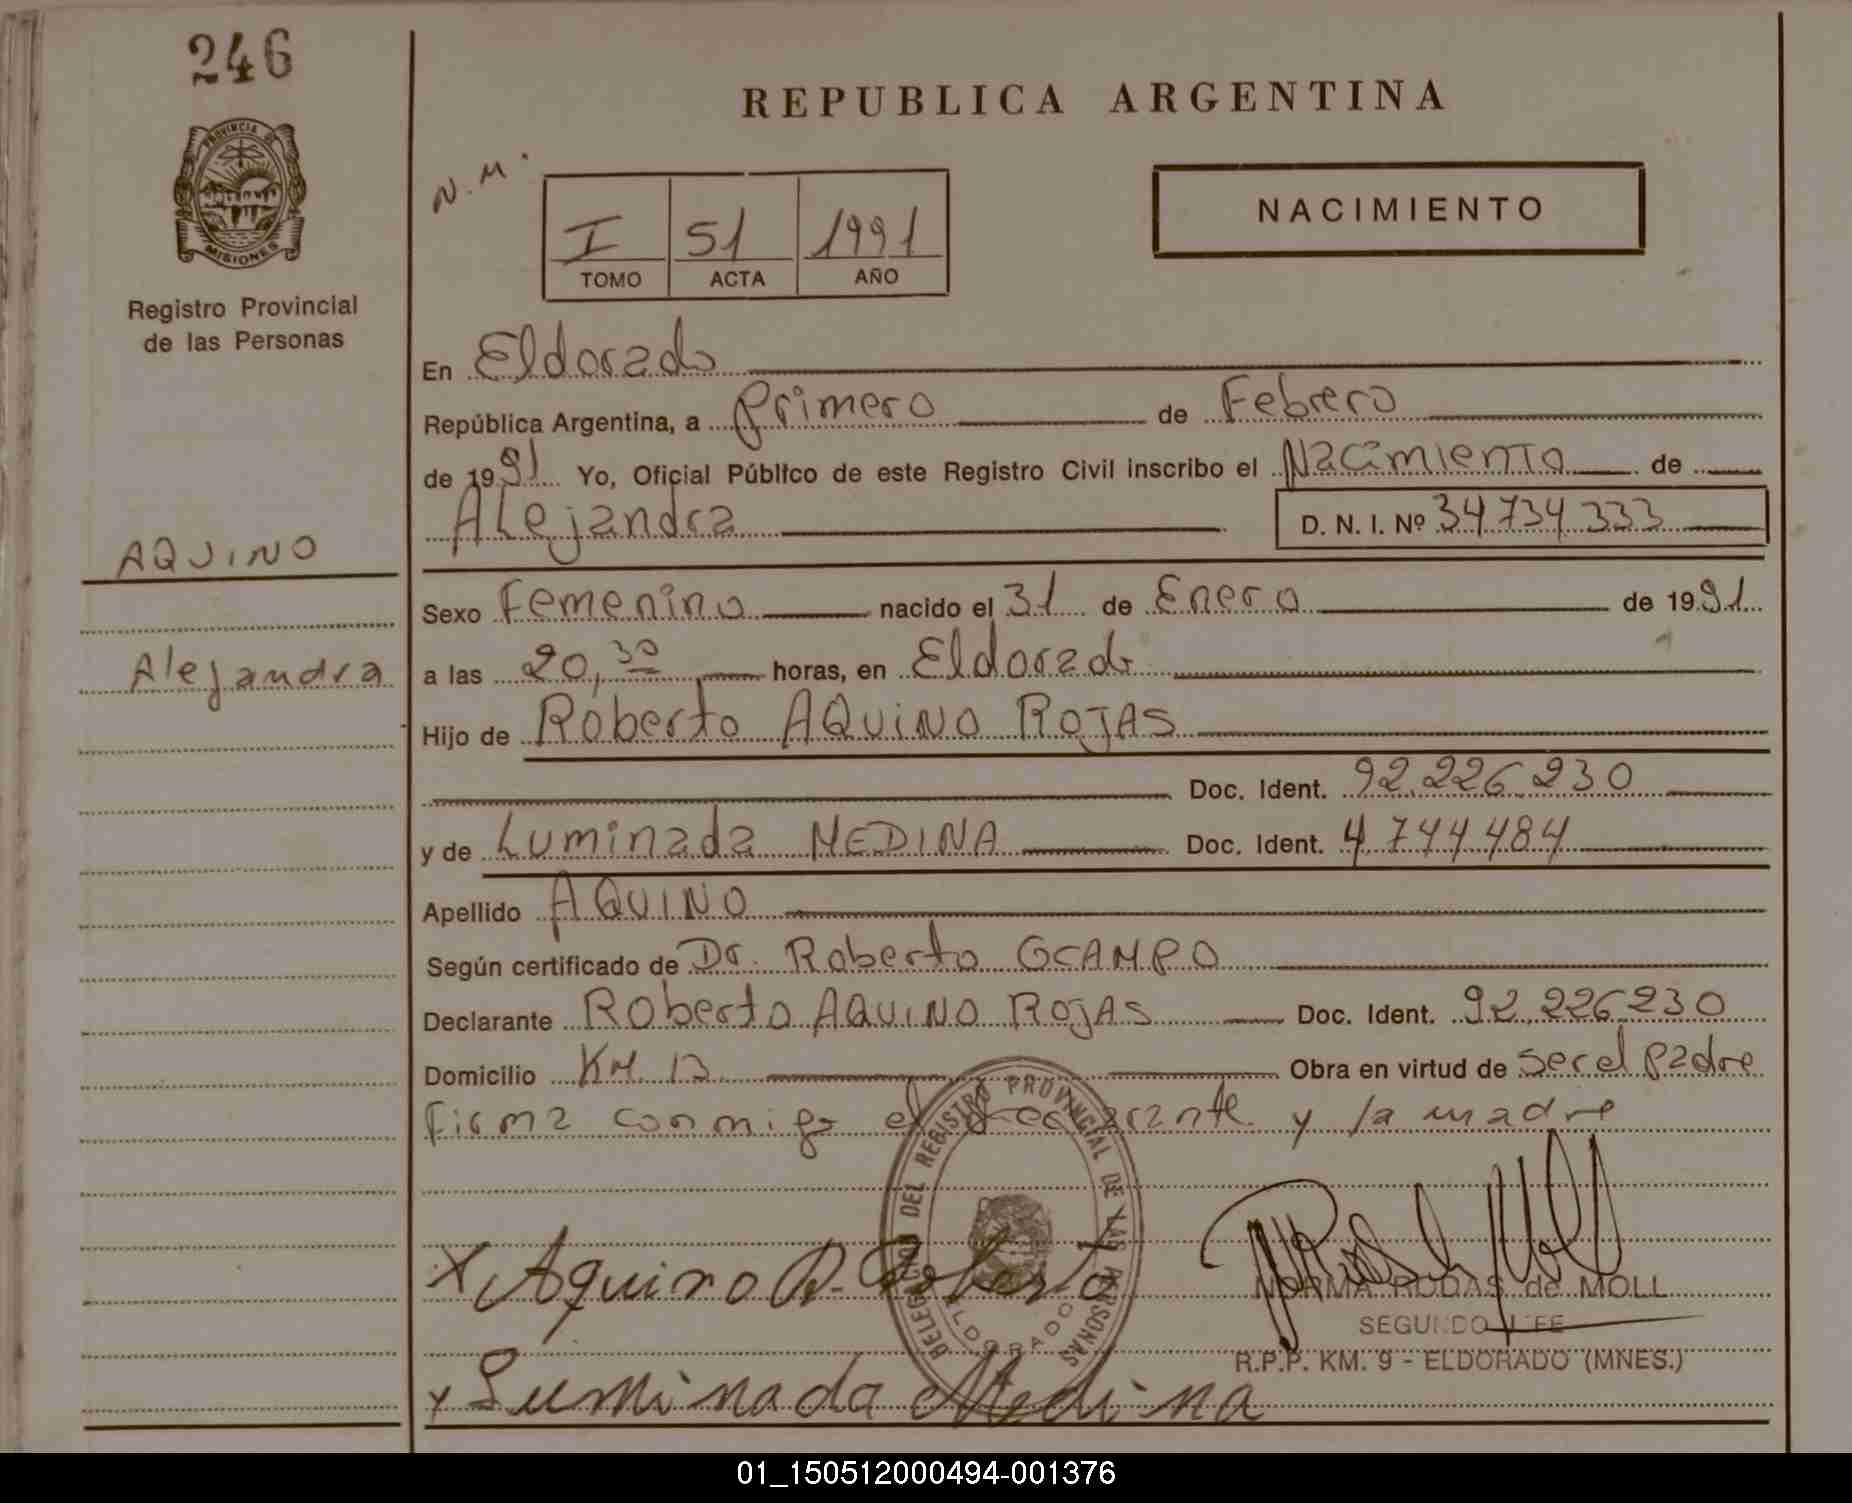 246
PROVINCIA DE
MISIONES
Registro Provincial
de las Personas
AQUINO
Alejandra
REPUBLICA ARGENTINA
N.M.
I 51 1991
TOMO ACTA AÑO
NACIMIENTO
En Eldorado
República Argentina, a primero de Febrero
de 1991 Yo, Oficial Público de este Registro Civil inscribo el Nacimiento de
Alejandra D. N. I. Nº 34 734 333
Sexo Femenino nacido el 31 de Enero de 1991
a las 20,30 horas, en Eldorado
Hijo de Roberto AQUINO ROJAS
Doc. Ident. 92.226.230
y de Luminada MEDINA Doc. Ident. 4 744 484
Apellido AQUINO
Según certificado de Dr. Roberto OCAMPO
Declarante Roberto AQUINO ROJAS Doc. Ident. 92.226.230
Domicilio KM. 13 Obra en virtud de ser el padre
firma conmigo el declarante y la madre
DELEGACION DEL REGISTRO PROVINCIAL DE LAS PERSONAS
ELDORADO
x Aquino R. Roberto
NORMA RODAS de MOLL
SEGUNDO JEFE
R.P.P. KM. 9 - ELDORADO (MNES.)
x Luminada Medina
01_150512000494-001376